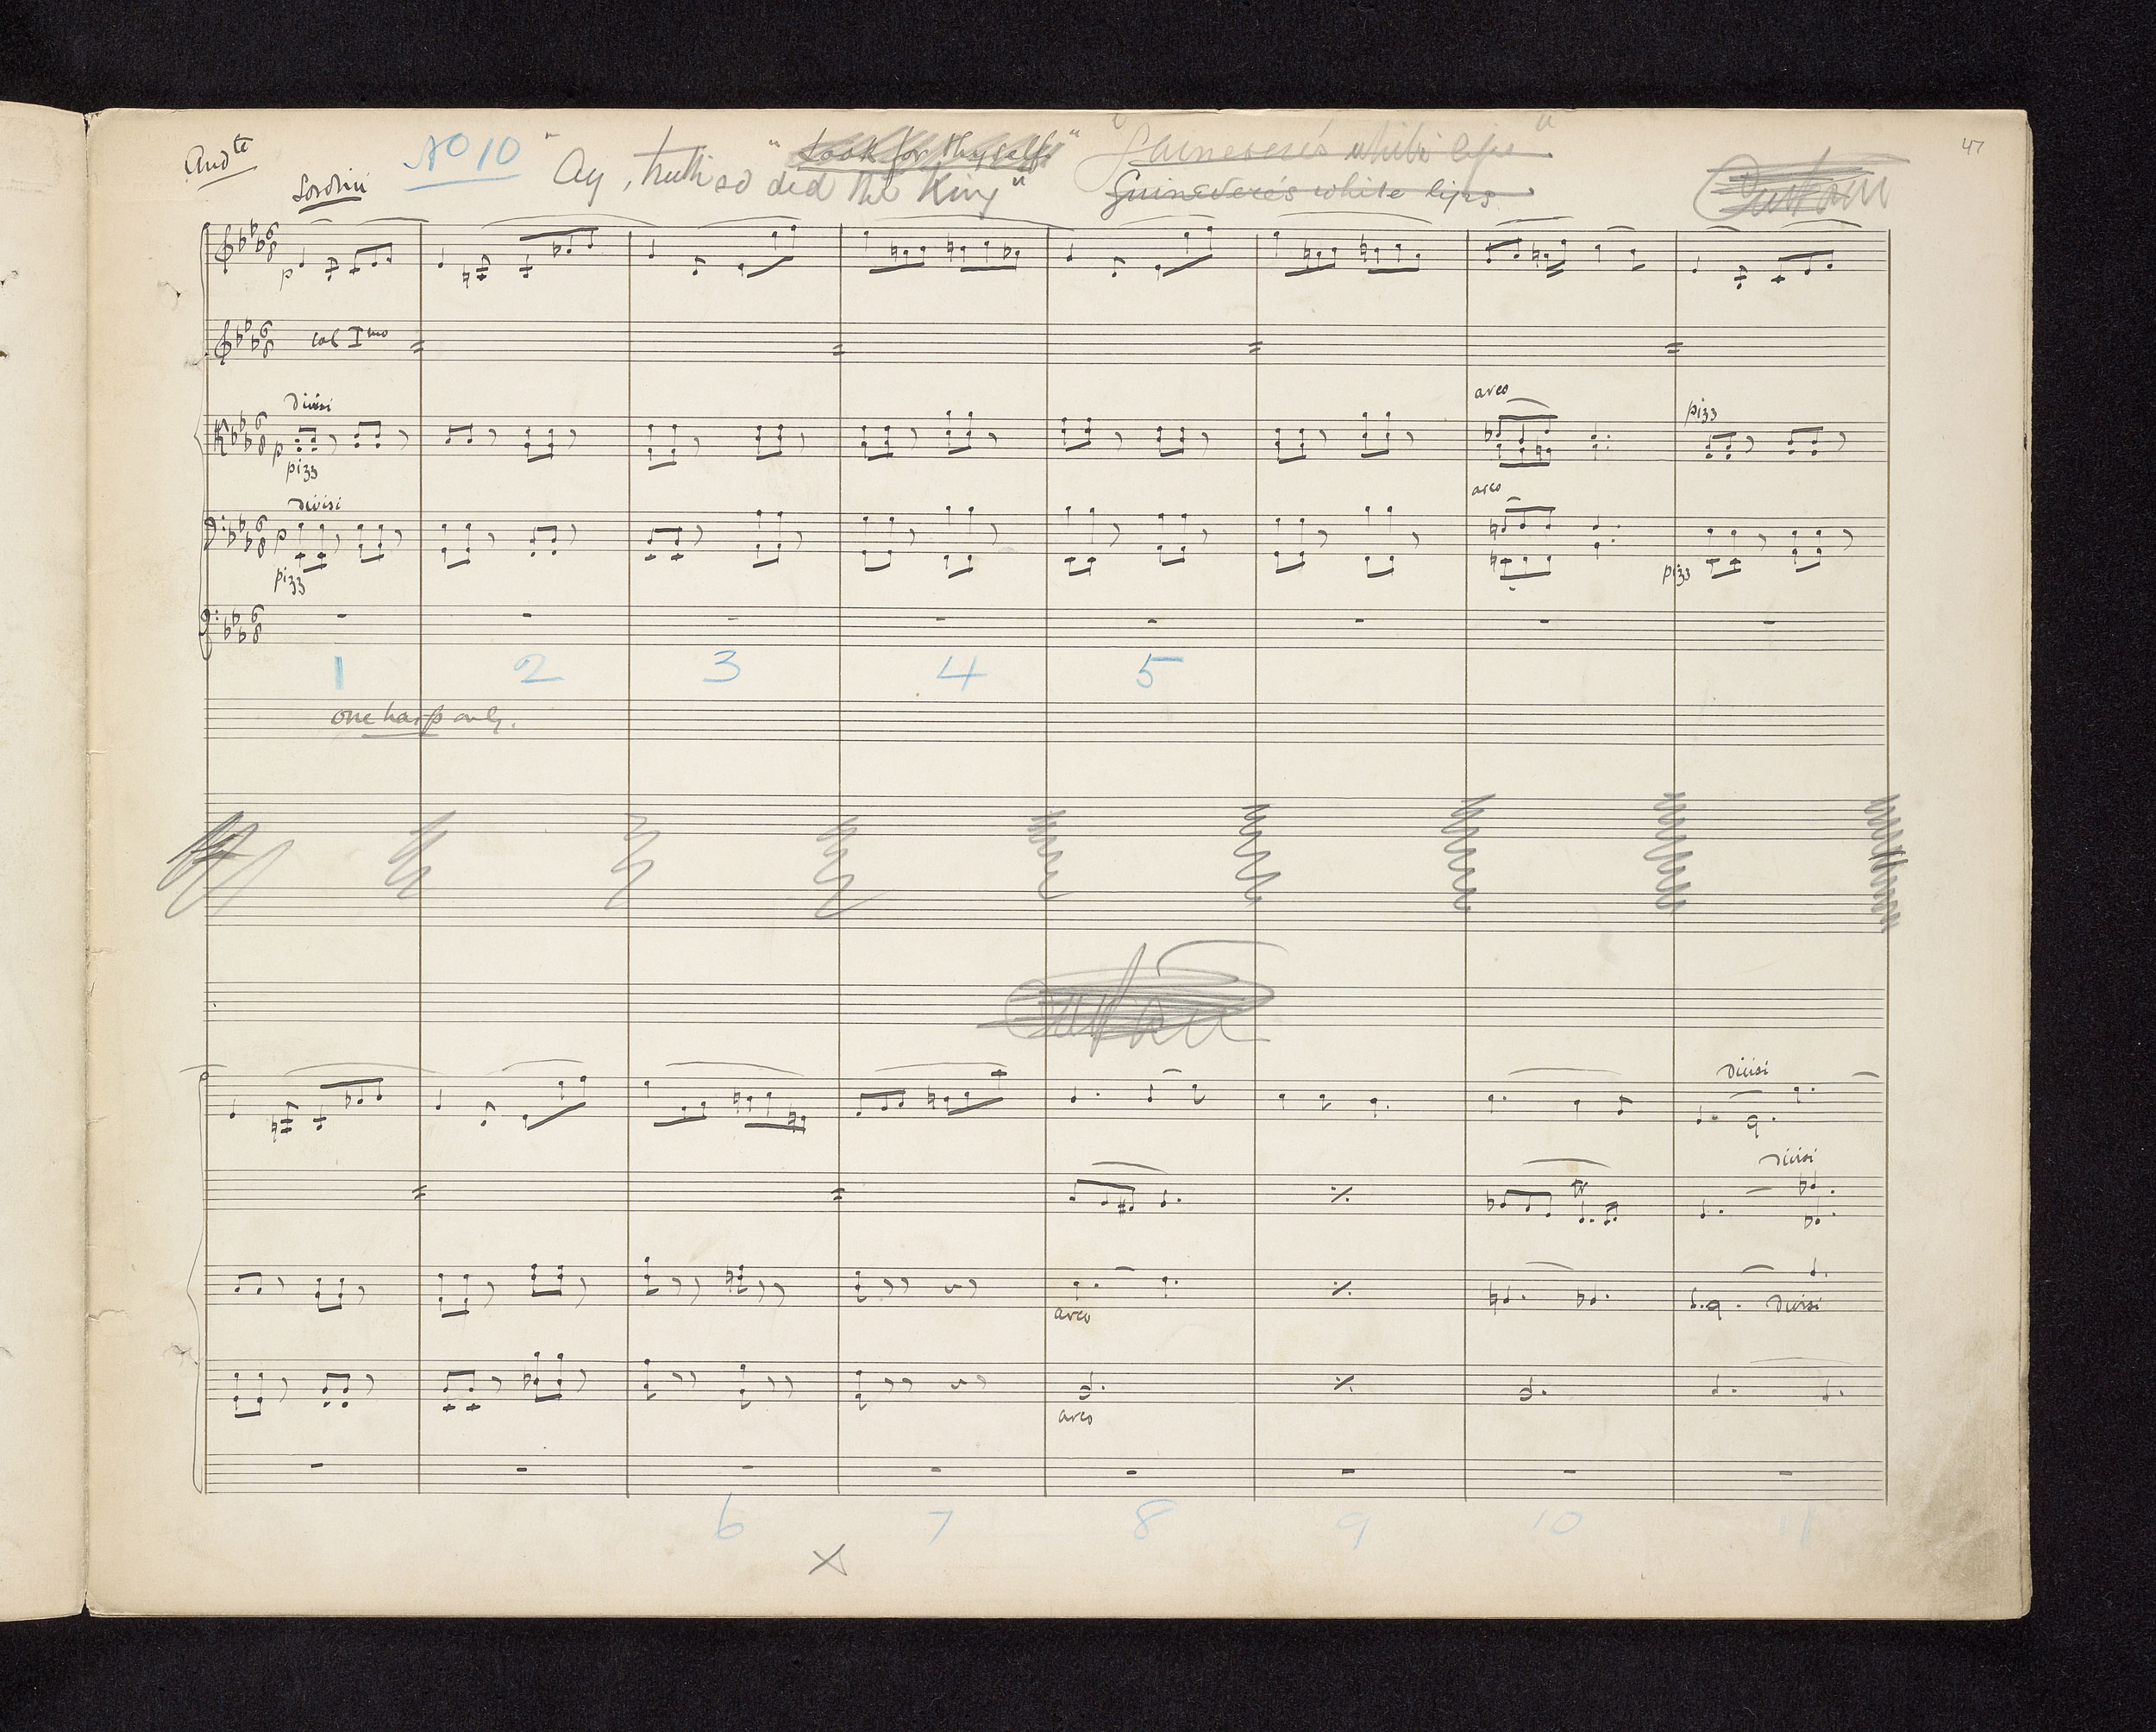 Andte
Sordini
No 10
"Ay, truth so did the King"
"Look for thyself"
"Guinevere's white lips"
Guinevere's white lips
Curtain
47
p
col Imo
divisi
arco
pizz
p
pizz
divisi
arco
p
pizz
pizz
1 2 3 4 5
one harp only.
Curtain
divisi
divisi
arco
divisi
arco
6 7 8 9 10 11
x